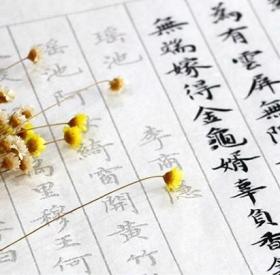 為有雲屏無
無端嫁得金龜婿辜負香
瑤池 李商隱
瑤池阿 綺窗開黃竹
萬里穆王何